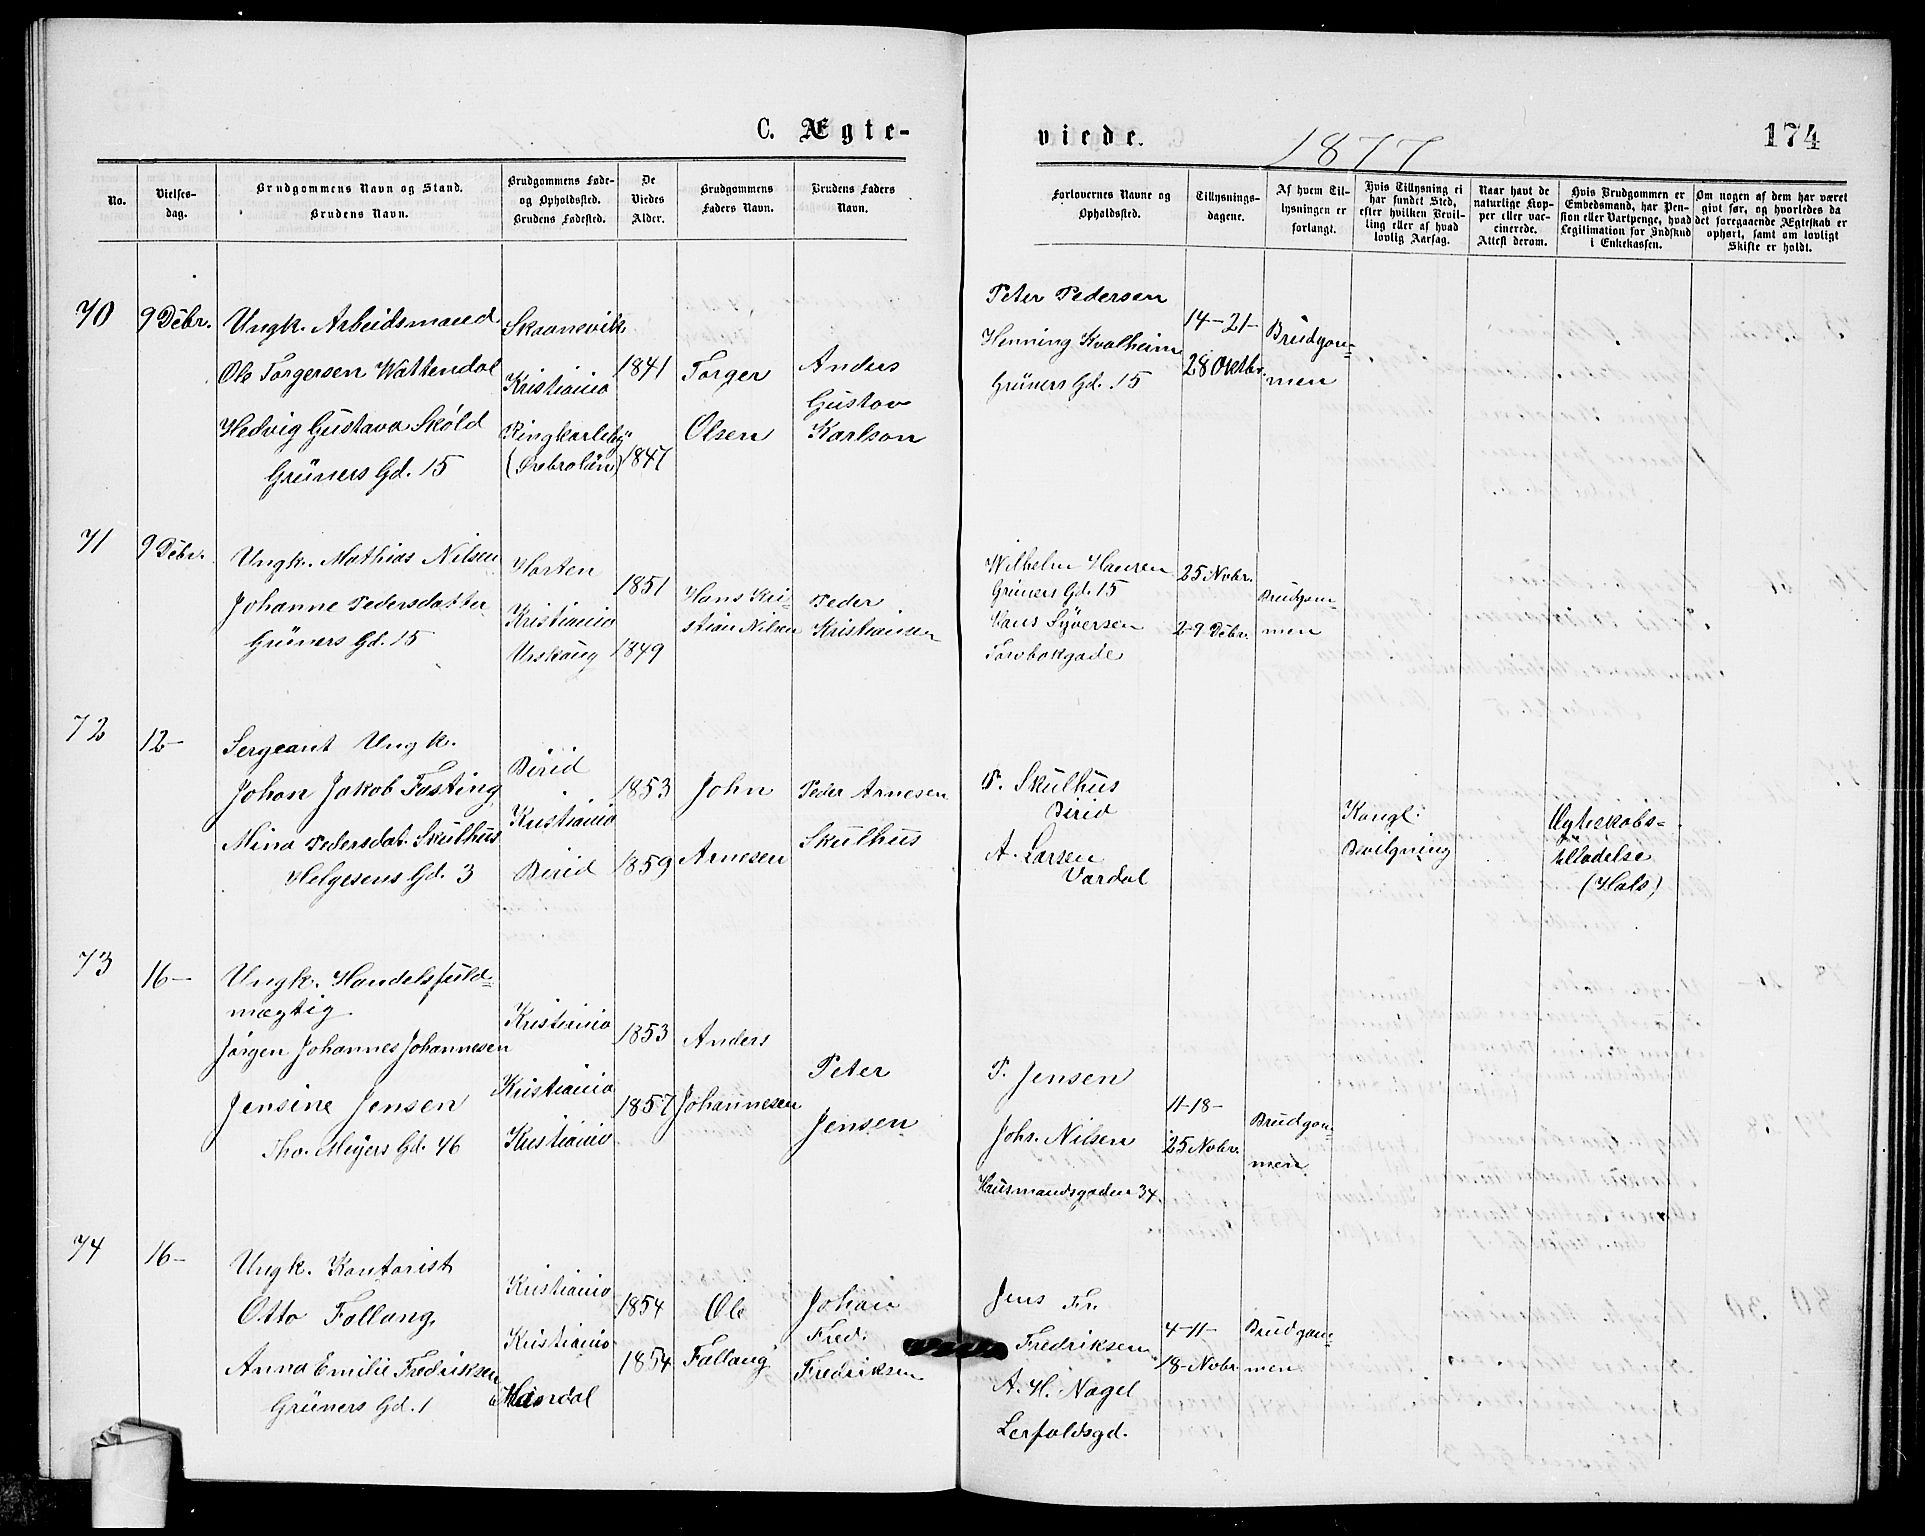 C. Ægte-
viede.
1877
174
No.
Vielses-
dag.
Brudgommens Navn og Stand.
Brudens Navn.
Brudgommens Føde-
og Opholdssted.
Brudens Fødested.
De
Viedes
Alder.
Brudgommens
Faders Navn.
Brudens Faders
Navn.
Forlovernes Navne og
Opholdssted.
Tillysnings-
dagene.
Af hvem Til-
lysningen er
forlangt.
Hvis Tillysning ei
har fundet Sted,
efter hvilken Bevil-
ling eller af hvad
lovlig Aarsag.
Naar havt de
naturlige Kop-
per eller vac-
cinerede.
Attest derom.
Hvis Brudgommen er
Embedsmand, har Pen-
sion eller Vartpenge, hvad
Legitimation for Indskud
i Enkekassen.
Om nogen af dem har været
givt før, og hvorledes da
det foregaaende Ægteskab er
ophørt, samt om lovligt
Skifte er holdt.
70
9 Debr.
Ungk. Arbeidsmand
Ole Torgersen Wattendal
Hedvig Gustava Skøld
Grüners Gd. 15
Skaanevik
Kristiania
Ringkarleby
(Ørebrolän)
1841
1847
Torger
Olsen
Anders
Gustav
Karlson
Peter Pedersen
Henning Kvalheim
Grüners Gd. 15
14-21-
28 Oktbr.
Brudgom-
men
71
9 Debr.
Ungk. Mathias Nilsen
Johanne Pedersdatter
Grüners Gd. 15
Horten
Kristiania
Urskoug
1851
1849
Hans Kri-
stian Nilsen
Peder
Kristiansen
Wilhelm Hansen
Grüners Gd. 15
Hans Syversen
Torvbakgade
25 Nobr.
2-9 Debr.
Brudgom-
men
72
12-
Sergeant Ungk.
Johan Jakob Fasting
Mina Pedersdat. Skulhus
Helgesens Gd. 3
Birid
Kristiania
Birid
1853
1859
John
Arnesen
Peder Arnesen
Skulhus
P. Skulhus
Birid
A. Larsen
Vardal
Kongl:
Bevilgning
Ægteskabs-
tilladelse
(Hals)
73
16-
Ungk. Handelsfuld-
mægtig
Jørgen Johannes Johannesen
Jensine Jensen
Tho. Meyers Gd. 46
Kristiania
Kristiania
Kristiania
1853
1857
Anders
Johannesen
Peter
Jensen
P. Jensen
Johs. Nilsen
Hausmandsgaden 34.
11-18-
25 Nobr.
Brudgom-
men
74
16-
Ungk. Kontorist
Otto Fallang
Anna Emilie Fredriksen
Grüners Gd. 1
Kristiania
Kristiania
1854
1854
Ole
Fallang
Johan
Fred.
Fredriksen
Jens Fr.
Fredriksen
A. H. Nagel
Lerfaldsgd.
4-11-
18-Nobr.
Brudgom-
men